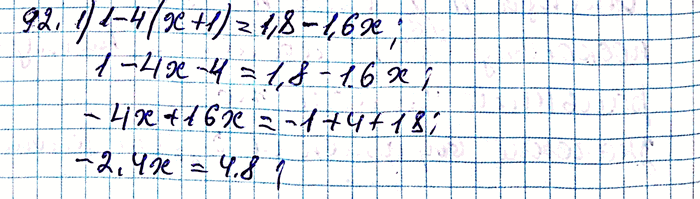 92. 1) 1-4(x+1)=1,8-1,6x;
1-4x-4=1,8-1.6x;
-4x+1.6x=-1+4+1.8;
-2.4x=4.8;